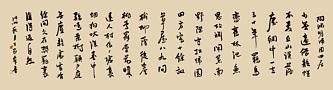 陶淵明歸園田居
少無適俗韻性
本愛丘山誤落
塵網中一去
三十年羈鳥
戀舊林池魚
思故淵開荒南
野際守拙歸園
田方宅十餘畝
草屋八九間
榆柳蔭後簷桃
李羅堂前曖曖
遠人村依依墟里
煙狗吠深巷中
雞鳴桑樹顛戶庭
無塵雜虛室有餘
閒久在樊籠裏復得
返自然